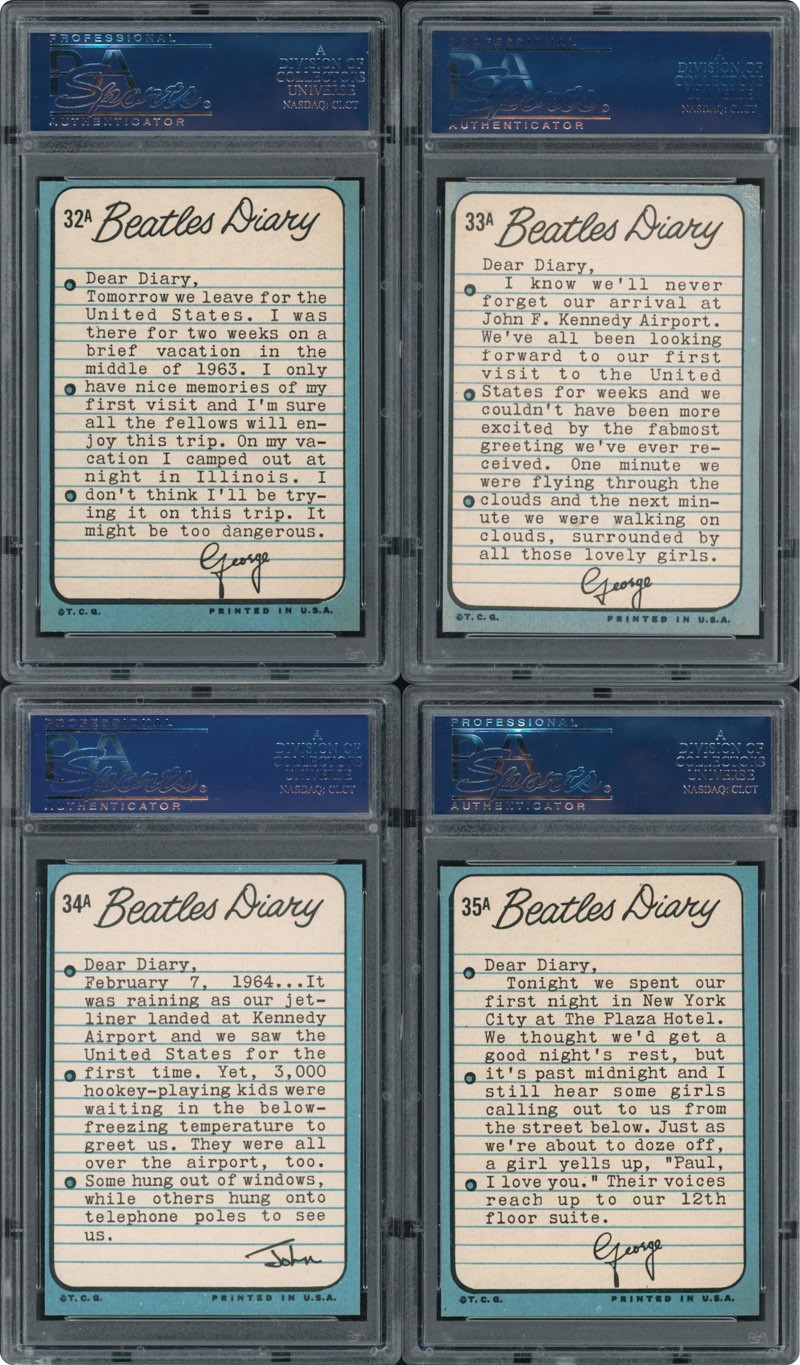 PROFESSIONAL
PSA
Sports
AUTHENTICATOR
A
DIVISION OF
COLLECTORS
UNIVERSE
NASDAQ: CLCT
32A Beatles Diary
Dear Diary,
Tomorrow we leave for the
United States. I was
there for two weeks on a
brief vacation in the
middle of 1963. I only
have nice memories of my
first visit and I'm sure
all the fellows will en-
joy this trip. On my va-
cation I camped out at
night in Illinois. I
don't think I'll be try-
ing it on this trip. It
might be too dangerous.
George
©T.C.G. PRINTED IN U.S.A.
PROFESSIONAL
PSA
Sports
AUTHENTICATOR
A
DIVISION OF
COLLECTORS
UNIVERSE
NASDAQ: CLCT
33A Beatles Diary
Dear Diary,
I know we'll never
forget our arrival at
John F. Kennedy Airport.
We've all been looking
forward to our first
visit to the United
States for weeks and we
couldn't have been more
excited by the fabmost
greeting we've ever re-
ceived. One minute we
were flying through the
clouds and the next min-
ute we were walking on
clouds, surrounded by
all those lovely girls.
George
©T.C.G. PRINTED IN U.S.A.
PROFESSIONAL
PSA
Sports
AUTHENTICATOR
A
DIVISION OF
COLLECTORS
UNIVERSE
NASDAQ: CLCT
34A Beatles Diary
Dear Diary,
February 7, 1964...It
was raining as our jet-
liner landed at Kennedy
Airport and we saw the
United States for the
first time. Yet, 3,000
hookey-playing kids were
waiting in the below-
freezing temperature to
greet us. They were all
over the airport, too.
Some hung out of windows,
while others hung onto
telephone poles to see
us.
John
©T.C.G. PRINTED IN U.S.A.
PROFESSIONAL
PSA
Sports
AUTHENTICATOR
A
DIVISION OF
COLLECTORS
UNIVERSE
NASDAQ: CLCT
35A Beatles Diary
Dear Diary,
Tonight we spent our
first night in New York
City at The Plaza Hotel.
We thought we'd get a
good night's rest, but
it's past midnight and I
still hear some girls
calling out to us from
the street below. Just as
we're about to doze off,
a girl yells up, "Paul,
I love you." Their voices
reach up to our 12th
floor suite.
George
©T.C.G. PRINTED IN U.S.A.